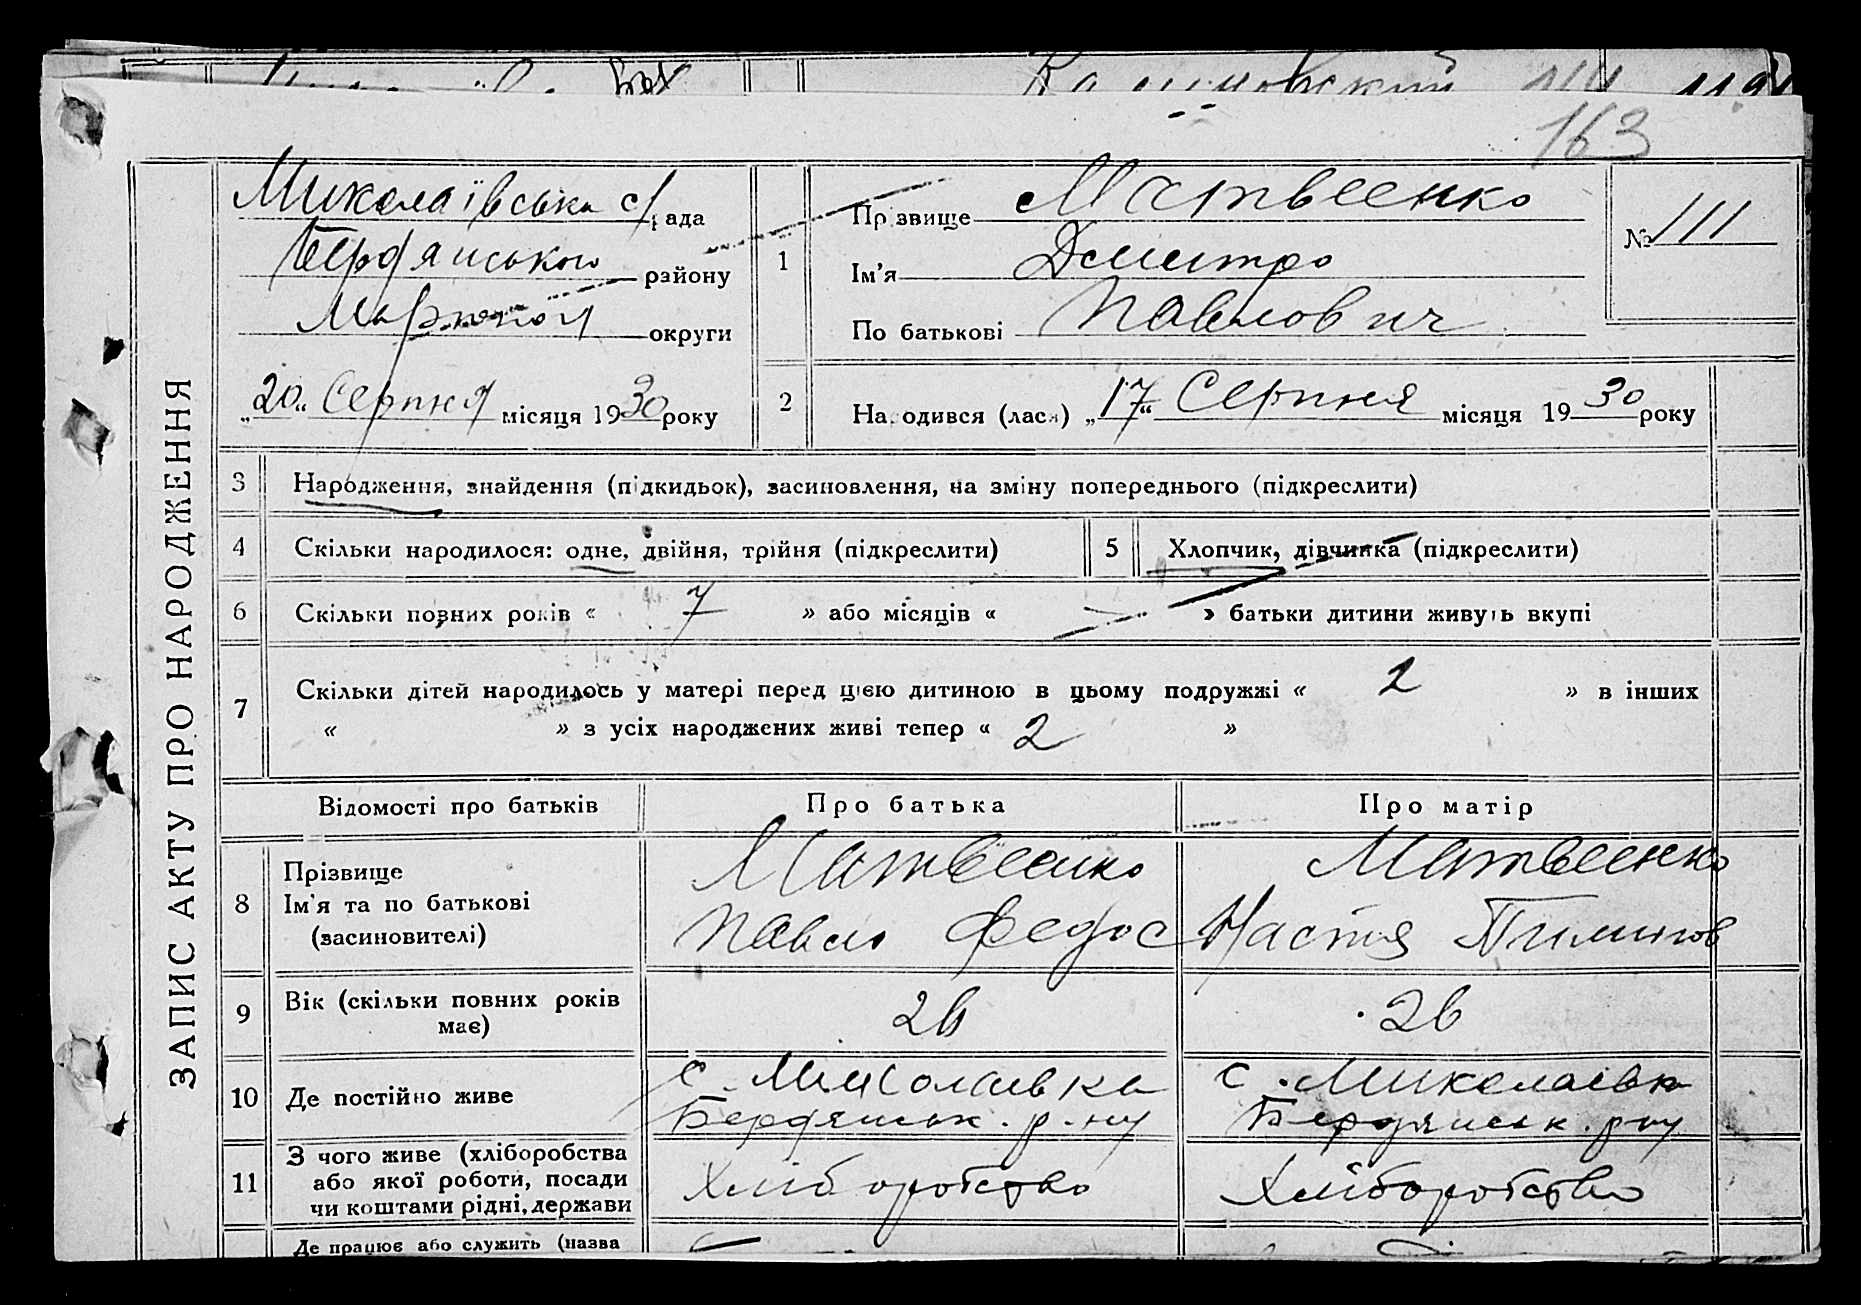 Калиновский
163
ЗАПИС АКТУ ПРО НАРОДЖЕННЯ
Миколаївська с/рада
Бердянського району
Маріюпол округи
„20“ Серпня місяця 1930 року
1
Прізвище Матвеенко
Ім'я Дмитро
По батькові Павлович
№ 111
2
Народився (лася) „17“ Серпня місяця 1930 року
3 Народження, знайдення (підкидьок), засиновлення, на зміну попереднього (підкреслити)
4 Скільки народилося: одне, двійня, трійня (підкреслити)
5 Хлопчик, дівчинка (підкреслити)
6 Скільки повних років « 7 » або місяців « — » батьки дитини живуть вкупі
7 Скільки дітей народилось у матері перед цією дитиною в цьому подружжі « 2 » в інших
« » з усіх народжених живі тепер « 2 »
Відомості про батьків Про батька Про матір
8 Прізвище
Ім'я та по батькові
(засиновителі)
Матвеенко
Павло Федос
Матвеенко
Настя Пилипов
9 Вік (скільки повних років
має)
26
26
10 Де постійно живе
с. Миколаевка
Бердянськ. р-ну
с. Миколаевка
Бердянськ. р-ну
11 З чого живе (хліборобства
або якої роботи, посади
чи коштами рідні, держави
Хліборобство
Хліборобство
Де працює або служить (назва